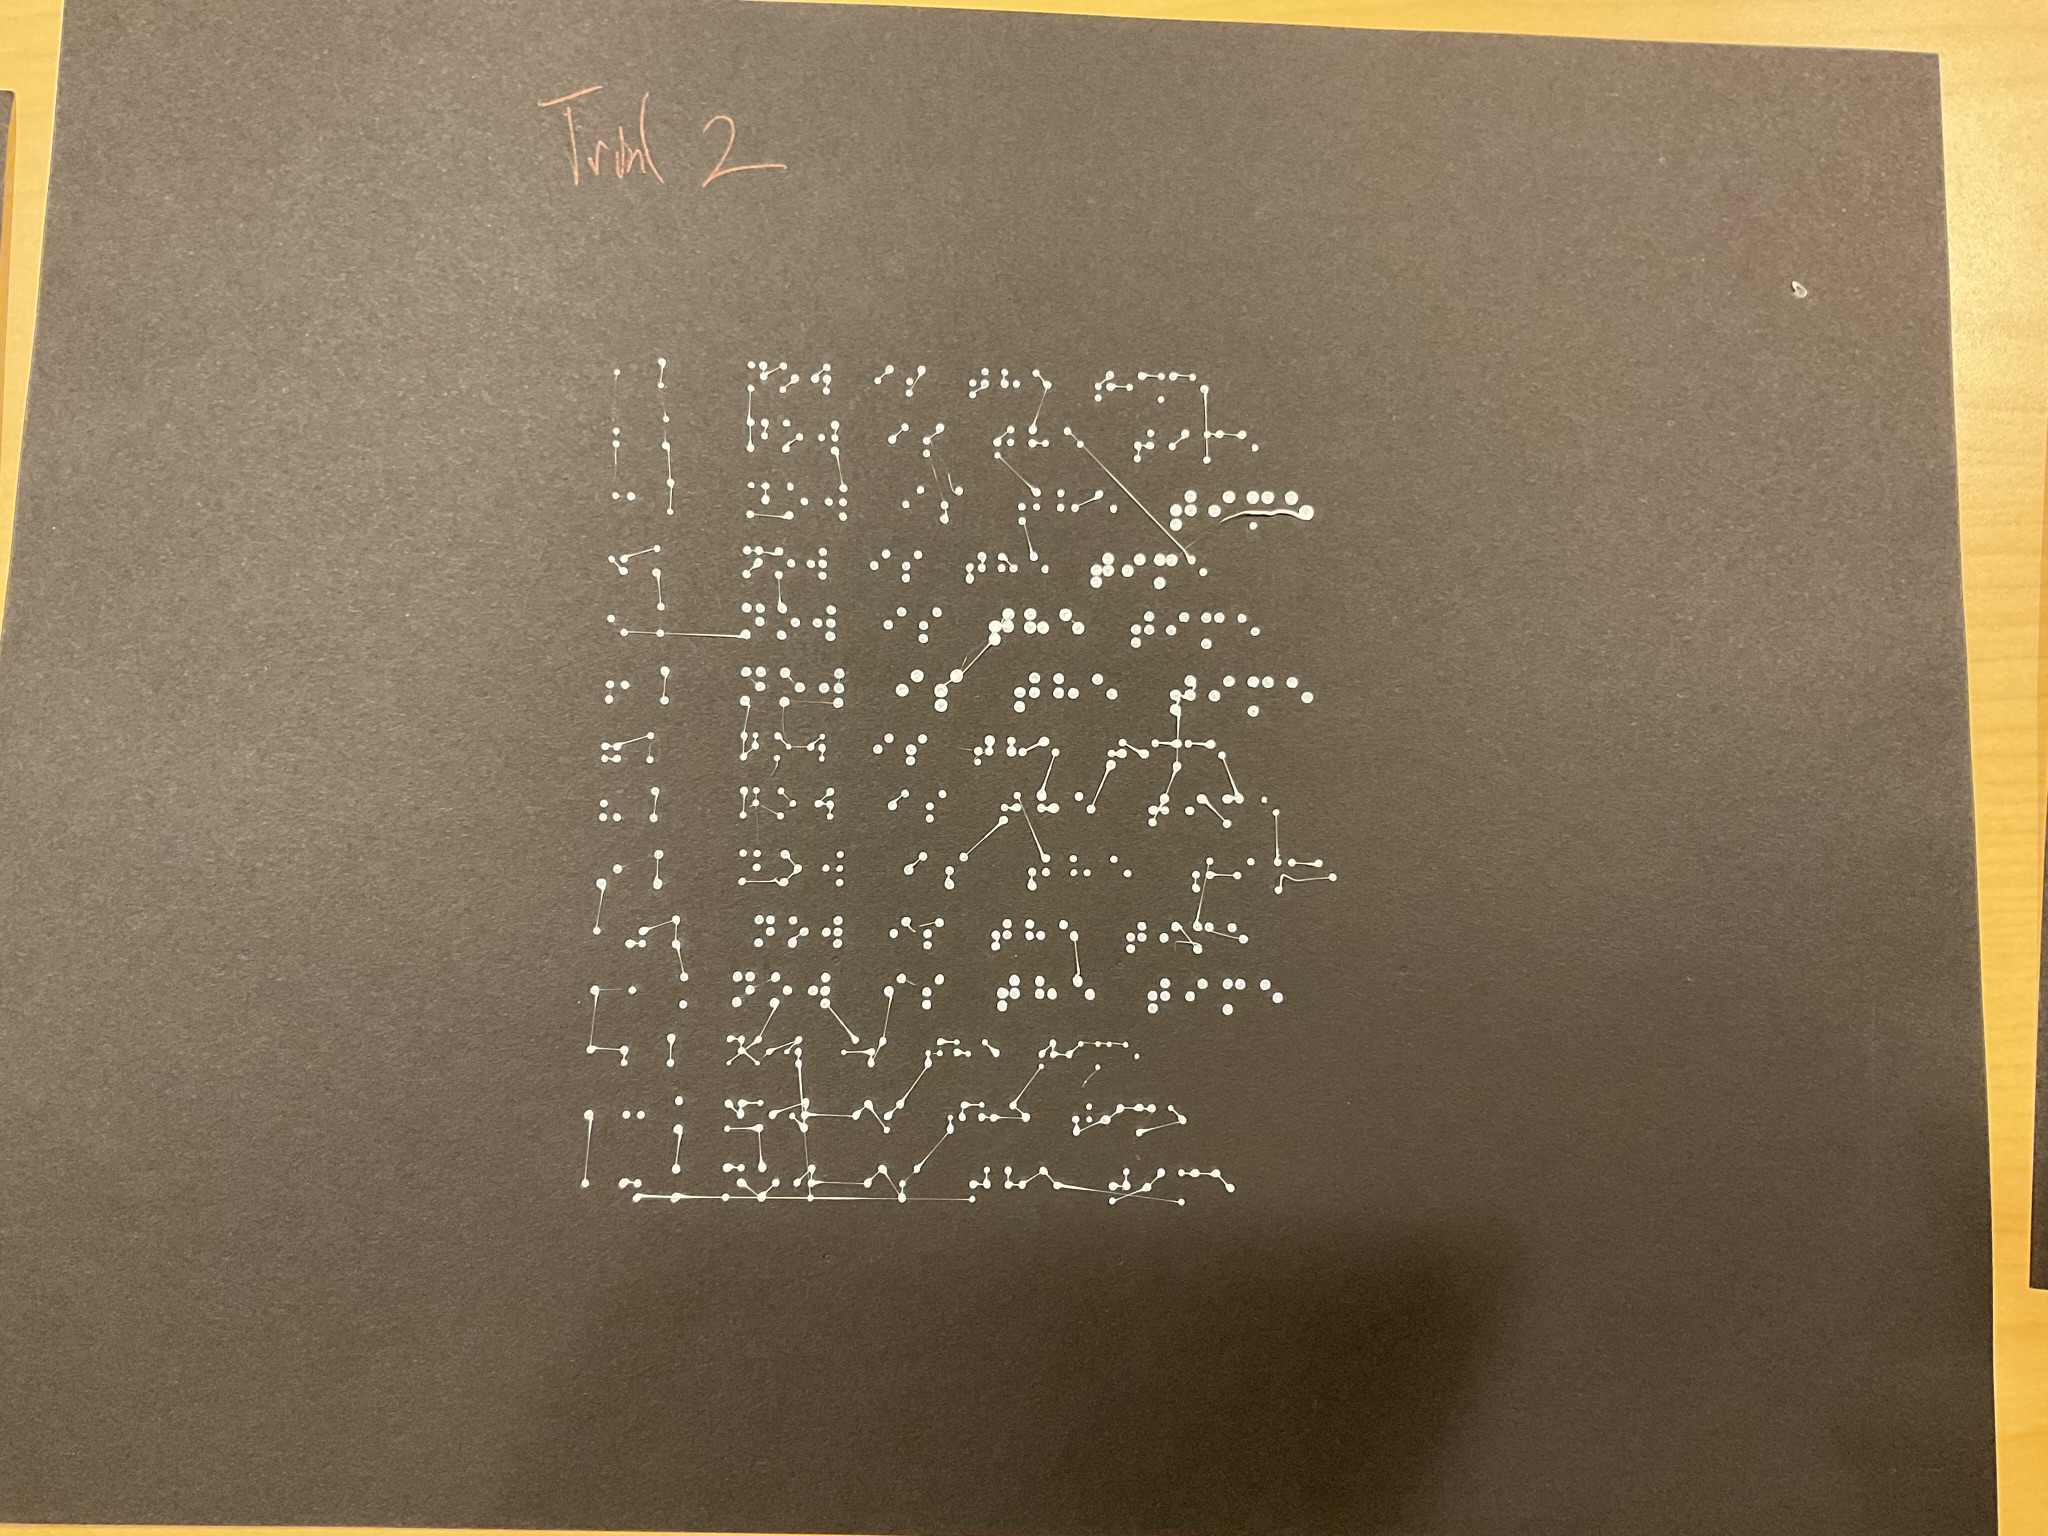 Trial 2
⠝⠕⠺ ⠊⠎ ⠞⠓⠑ ⠞⠊⠍⠑
⠝⠕⠺ ⠊⠎ ⠞⠓⠑ ⠞⠊⠍⠑
⠝⠕⠺ ⠊⠎ ⠞⠓⠑ ⠞⠊⠍⠑
⠝⠕⠺ ⠊⠎ ⠞⠓⠑ ⠞⠊⠍⠑
⠝⠕⠺ ⠊⠎ ⠞⠓⠑ ⠞⠊⠍⠑
⠝⠕⠺ ⠊⠎ ⠞⠓⠑ ⠞⠊⠍⠑
⠝⠕⠺ ⠊⠎ ⠞⠓⠑ ⠞⠊⠍⠑
⠝⠕⠺ ⠊⠎ ⠞⠓⠑ ⠞⠊⠍⠑
⠝⠕⠺ ⠊⠎ ⠞⠓⠑ ⠞⠊⠍⠑
⠝⠕⠺ ⠊⠎ ⠞⠓⠑ ⠞⠊⠍⠑
⠝⠕⠺ ⠊⠎ ⠞⠓⠑ ⠞⠊⠍⠑
⠝⠕⠺ ⠊⠎ ⠞⠓⠑ ⠞⠊⠍⠑
⠝⠕⠺ ⠊⠎ ⠞⠓⠑ ⠞⠊⠍⠑
⠝⠕⠺ ⠊⠎ ⠞⠓⠑ ⠞⠊⠍⠑